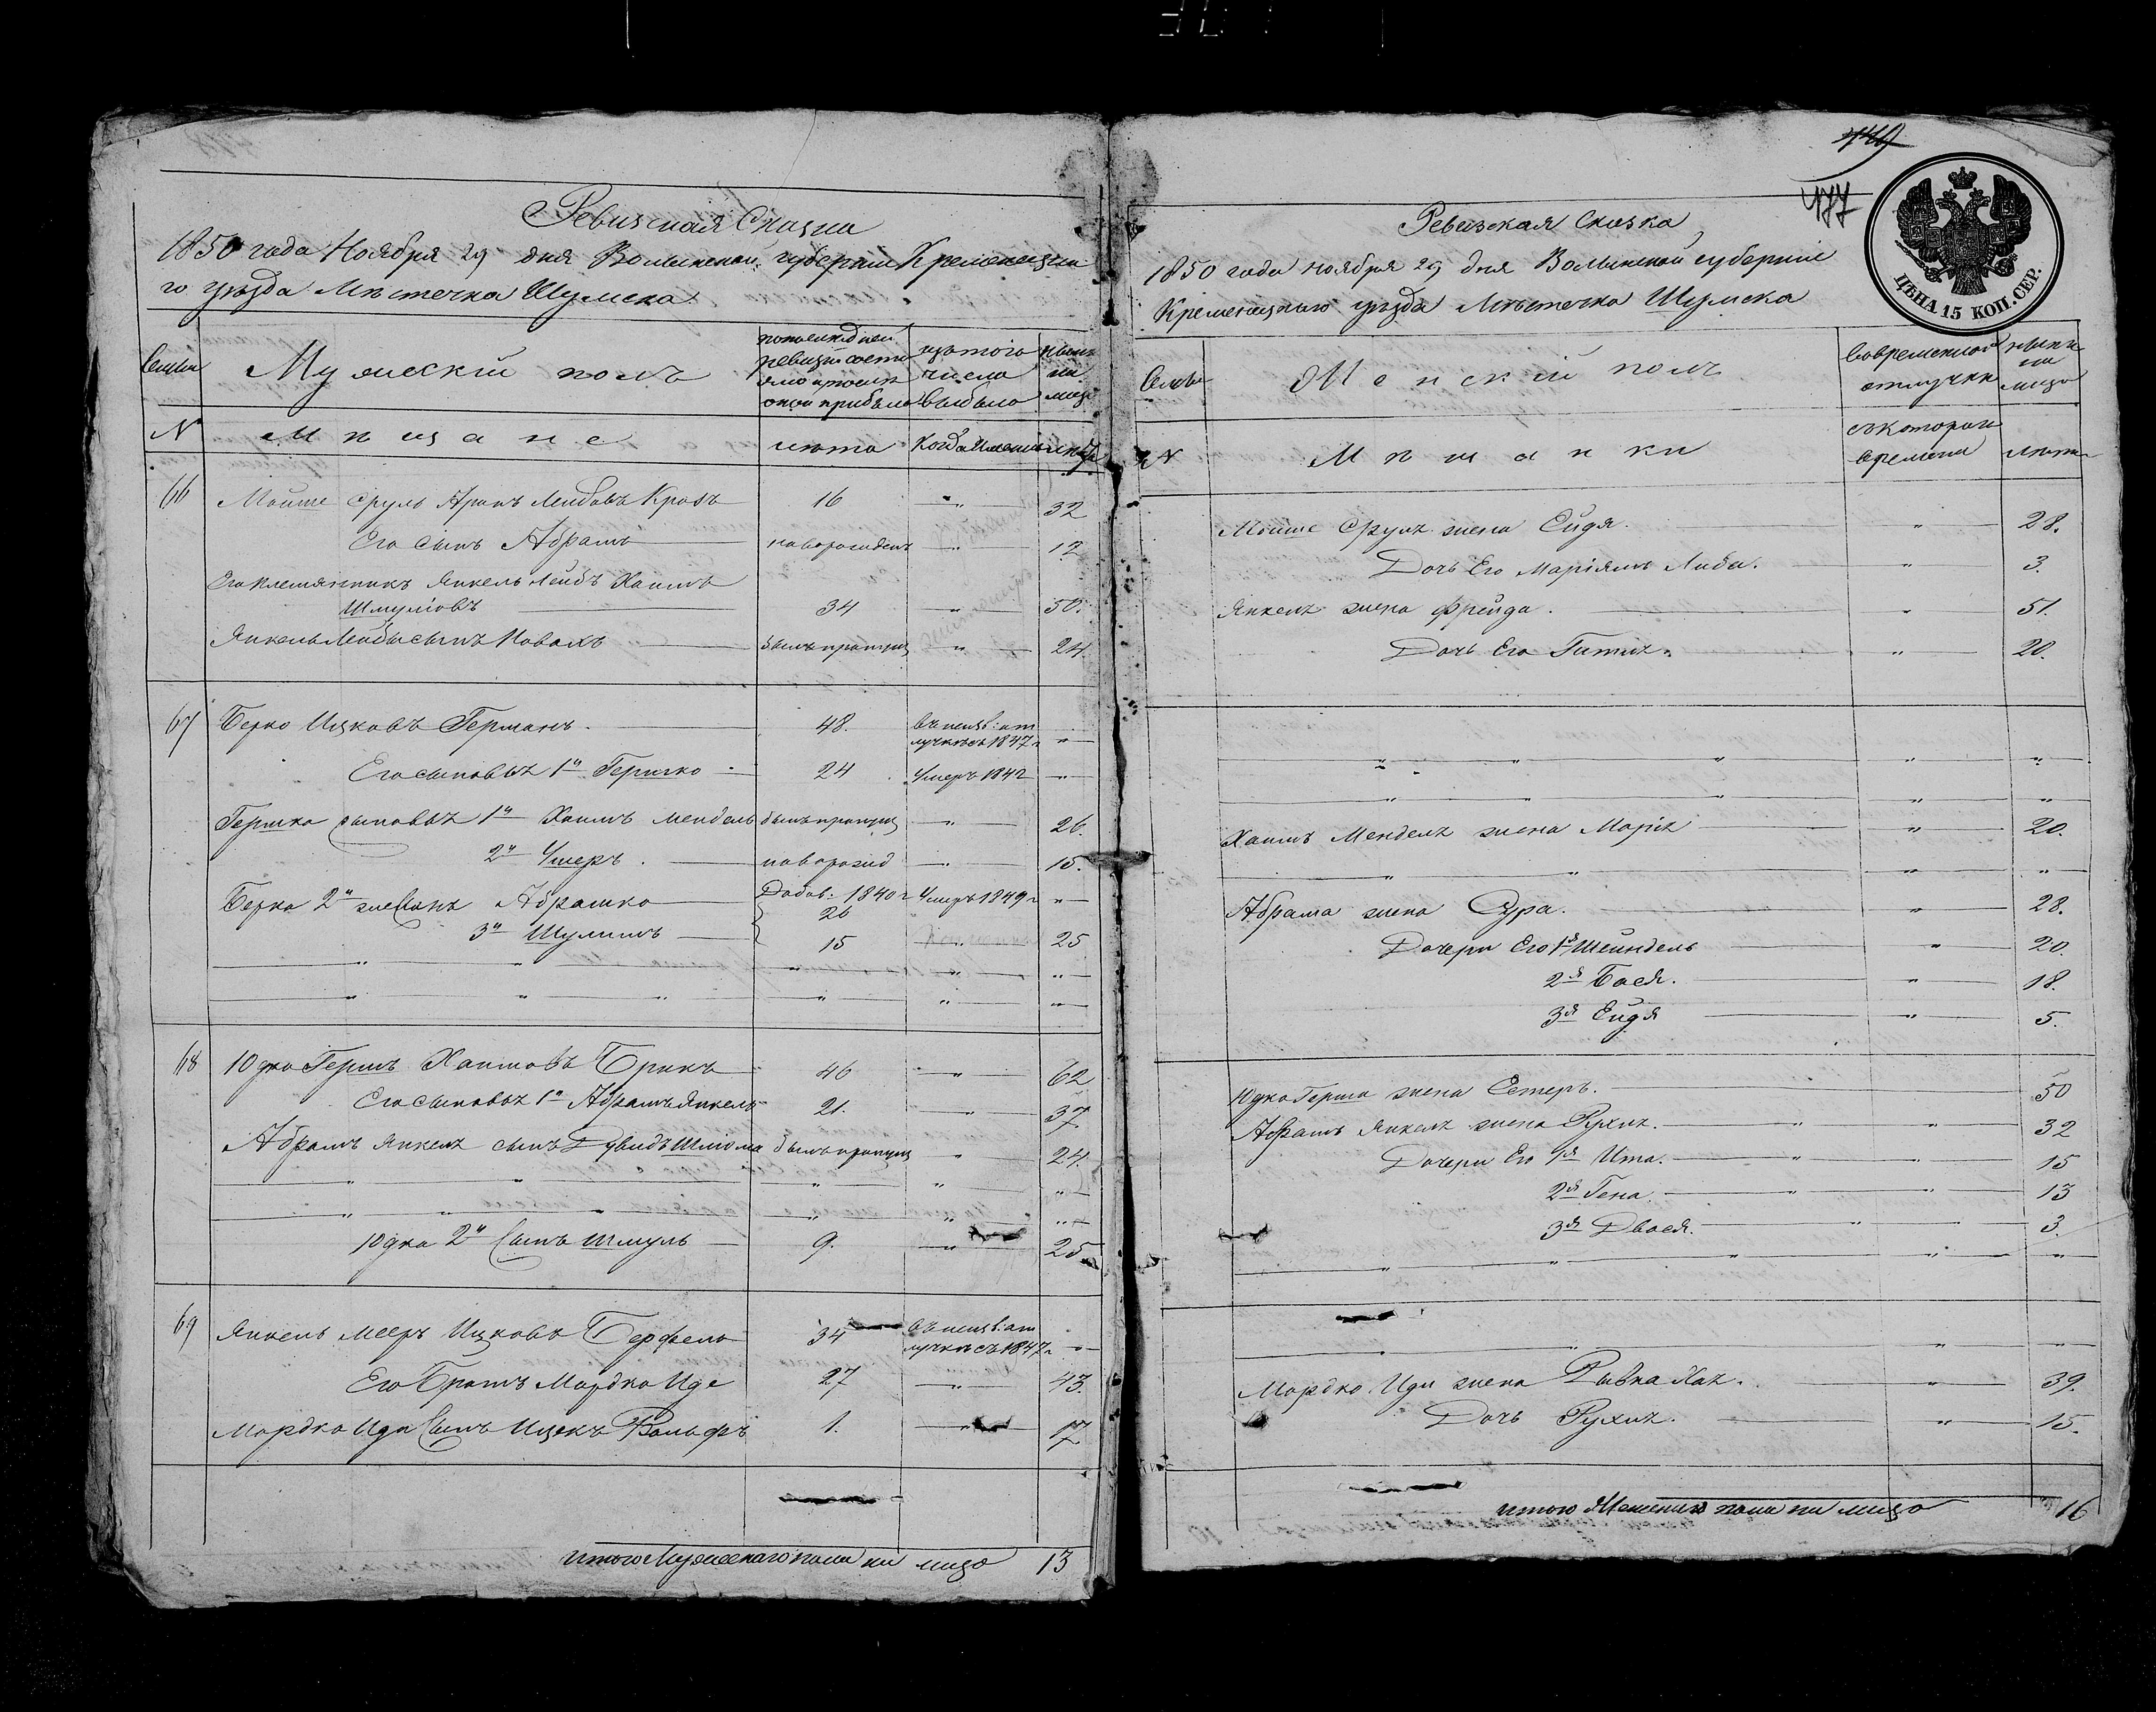 Ревизская Сказка
1850 года Ноября 29 дня Волынской губернии Кременецка
го уѣзда Мѣстечка Шумска
Семьи
Мужескій полъ
по последней ревизіи состояло и после оной прибыло
изъ того числа выбыло
нынѣ на лицо
N
Мѣщане
лѣта
Когда именно
лѣта
66
Мойше Сруль Аронъ Лейбовъ Кразъ 16 " 32
Его сынъ Абрамъ новорожденъ " 12
Его племянникъ Янкель Лейбъ Хаимъ
Шмуліовъ 34 " 50.
Янкель Лейбы сынъ Новахъ былъ пропущ " 24.
67
Берко Ицковъ Германъ. 48. въ неизв: от
лучкѣ съ 1847 г "
Его сыновья 1й Гершко 24 Умеръ 1842 "
Гершка сыновья 1й Хаимъ Мендель былъ пропущ " 26.
2й Умеръ. новорожд " 15.
Берка 2й же Сынъ Абрашко Добав. 1840 г Умеръ 1849 г "
26
3й Шулимъ 15 " 25
" " " " "
" " " " " "
68
Юдко Гершъ Хаимовъ Брикъ 46 " 62
Его сыновья 1й Абрамъ Янкель 21. " 37.
Абрамъ Янкеля сынъ Дувидъ Шліома былъ пропущ " 24.
" " " " "
" " " " " "
Юдка 2й Сынъ Шмуль 9. " 25.
69
Янкель Мееръ Ицковъ Берфель 34 въ неизв: от
лучкѣ съ 1847 г "
Его Братъ Мордко Иде 27 " 43.
Мордка Иди Сынъ Ицекъ Вольфъ 1. " 17
Итого Мужескаго пола на лицо 13
449
477
ЦѢНА 15 КОП. СЕР.
Ревизская Сказка
1850 года ноября 29 дня Волынской губерніи
Кременецкаго уѣзда Мѣстечка Шумска
Семьи
Женскій полъ
во временной отлучкѣ
нынѣ на лицо
N
Мѣщанки
съ которого времени
лѣта
Мойше Сруля жена Ейдя. " 28.
Дочь Его Маріямъ Либа. " 3.
Янкеля жена Фрейда. " 51.
Дочь Его Гитля. " 20.
" " " " "
" " " " "
Хаимъ Менделя жена Марія " 20.
" " " "
Абрама жена Сура. " 28.
Дочери Его 1я Шейндель " 20.
2я Бася. " 18.
3я Ейдя " 5.
Юдко Герша жена Естеръ. 50
Абрамъ Янкеля жена Рухля. " " 32
Дочери Его 1я Ита. " " 15
2я Гена. " " 13
3я Двося. " " 3.
" " " " "
" " " "
Мордко Иди жена Ривка Хая. " 39.
Дочь Рухля. " 15.
Итого Женскаго пола на лицо 16